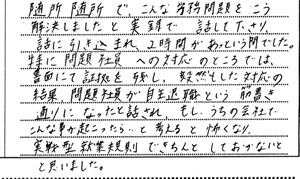 随所随所で、こんな労務問題をこう
解決しましたと実録で話して下さり
話に引き込まれ2時間があっという間でした。
特に問題社員への対応のところでは、
書面にて証拠を残し、毅然とした対応の
結果問題社員が自主退職という筋書き
通りになったと話され、もし、うちの会社で
こんな事が起こったら…と考えると怖くなり、
実戦型就業規則できちんとしておかないと
と思いました。